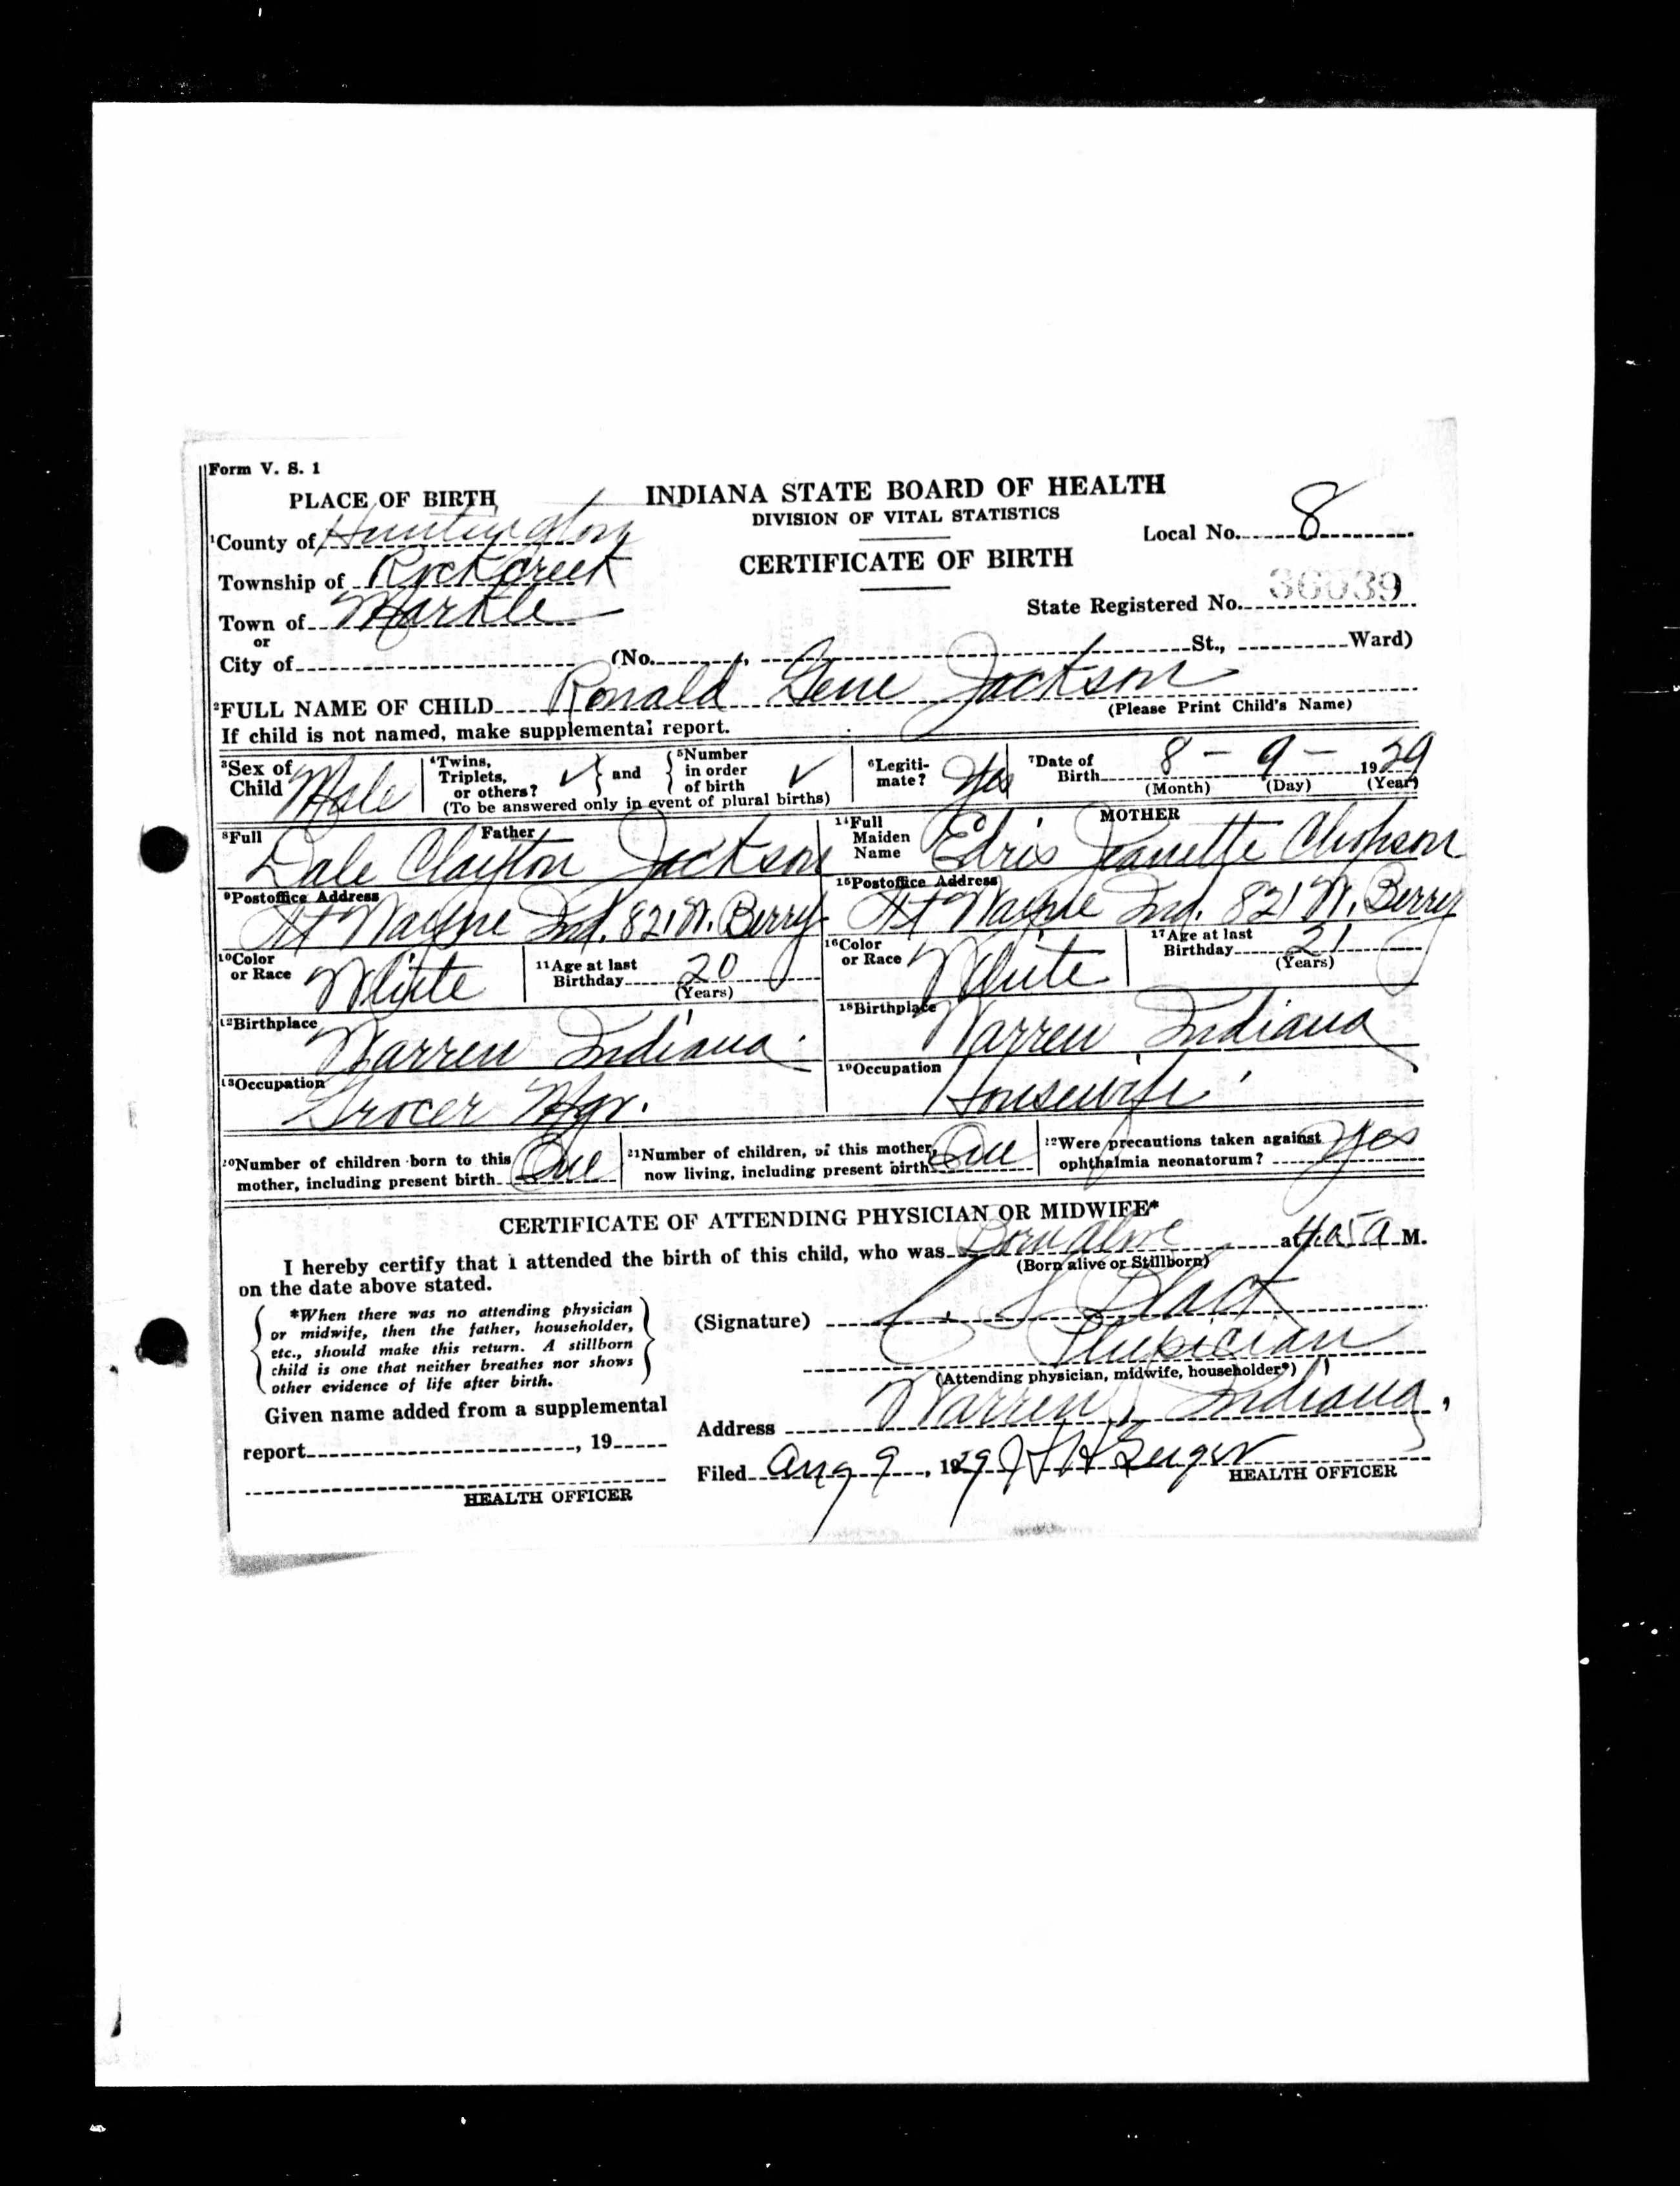 Form V. S. 1
PLACE OF BIRTH
INDIANA STATE BOARD OF HEALTH
DIVISION OF VITAL STATISTICS
CERTIFICATE OF BIRTH
Local No. 8
State Registered No. 36039
1County of Huntington
Township of Rockcreek
Town of Markle
or
City of (No. , St., Ward)
2FULL NAME OF CHILD Ronald Gene Jackson
(Please Print Child's Name)
If child is not named, make supplemental report.
3Sex of Child Male
4Twins, Triplets, or others? ✓ } and { 5Number in order of birth ✓
(To be answered only in event of plural births)
6Legiti-mate? Yes
7Date of Birth 8 - 9 - 1929
(Month) (Day) (Year)
8Full Father
Dale Clayton Jackson
9Postoffice Address
Ft Wayne Ind. 821 W. Berry
10Color or Race White
11Age at last Birthday 20
(Years)
12Birthplace
Warren Indiana
13Occupation
Grocer Mgr.
MOTHER
14Full Maiden Name Edris Jeanette
15Postoffice Address
Ft Wayne Ind. 821 W. Berry
16Color or Race White
17Age at last Birthday 21
(Years)
18Birthplace
Warren Indiana
19Occupation
Housewife
20Number of children born to this mother, including present birth One
21Number of children, of this mother, now living, including present birth One
22Were precautions taken against ophthalmia neonatorum? Yes
CERTIFICATE OF ATTENDING PHYSICIAN OR MIDWIFE*
I hereby certify that I attended the birth of this child, who was Born alive at 4.05 A M.
(Born alive or Stillborn)
on the date above stated.
*When there was no attending physician
or midwife, then the father, householder,
etc., should make this return. A stillborn
child is one that neither breathes nor shows
other evidence of life after birth.
(Signature) C. S. Black
Physician
(Attending physician, midwife, householder*)
Given name added from a supplemental
report , 19
HEALTH OFFICER
Address Warren, Indiana,
Filed Aug 9, 1929
HEALTH OFFICER